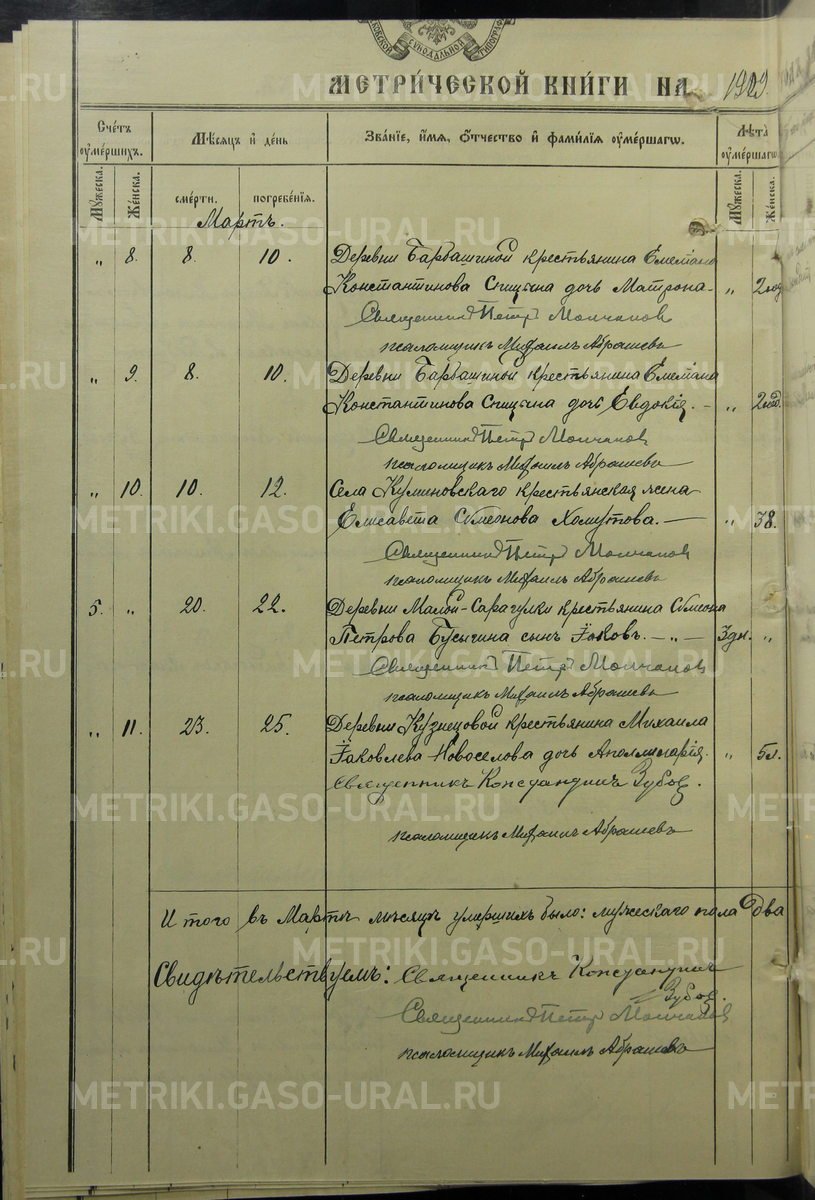 СѴНОДАЛЬНОЙ
МЕТРИ́ЧЕСКОЙ КНИ́ГИ НА 1909.
Сче́тъ ᲂу҆ме́ршихъ. Мѣ́сяцъ и҆ де́нь Зва́нїе, и҆́мя, ѻ҆́тчество и҆ фами́лїя ᲂу҆ме́ршагѡ. Лѣ́та ᲂу҆ме́ршагѡ
Мꙋ́жеска. Же́нска. сме́рти. погребе́нїя. Мꙋ́жеска. Же́нска.
Мартъ.
„ 8. 8. 10. Деревни Барбашиной крестьянина Емелiана
Константинова Спицына дочь Матрона. „ 2 год
Священникъ Петръ Молчанов
псаломщикъ Михаилъ Абрашевъ
„ 9. 8. 10. Деревни Барбашиной крестьянина Емелiана
Константинова Спицына дочь Евдокiя. – „ 2 год.
Священникъ Петръ Молчанов
псаломщикъ Михаилъ Абрашевъ
„ 10. 10. 12. Села Куминовскаго крестьянская жена
Елисавета Сѵмеонова Хомутова. — „ 38.
Священникъ Петръ Молчанов
псаломщикъ Михаилъ Абрашевъ
5. „ 20. 22. Деревни Малой-Сарагулки крестьянина Сѵмеона
Петрова Бусыгина сынъ Iаковъ. — „ — 3 дн. „
Священникъ Петръ Молчанов
псаломщикъ Михаилъ Абрашевъ
„ 11. 23. 25. Деревни Кузнецовой крестьянина Михаила
Iаковлева Новоселова дочь Аполлинарiя. „ 5 л.
Священникъ Константинъ Зубов.
псаломщикъ Михаилъ Абрашевъ
Итого въ Мартѣ мѣсяцѣ умершихъ было: мужескаго пола два
Свидѣтельствуемъ: Священникъ Константинъ
Зубов.
Священникъ Петръ Молчанов
псаломщикъ Михаилъ Абрашевъ
METRIKI.GASO-URAL.RU